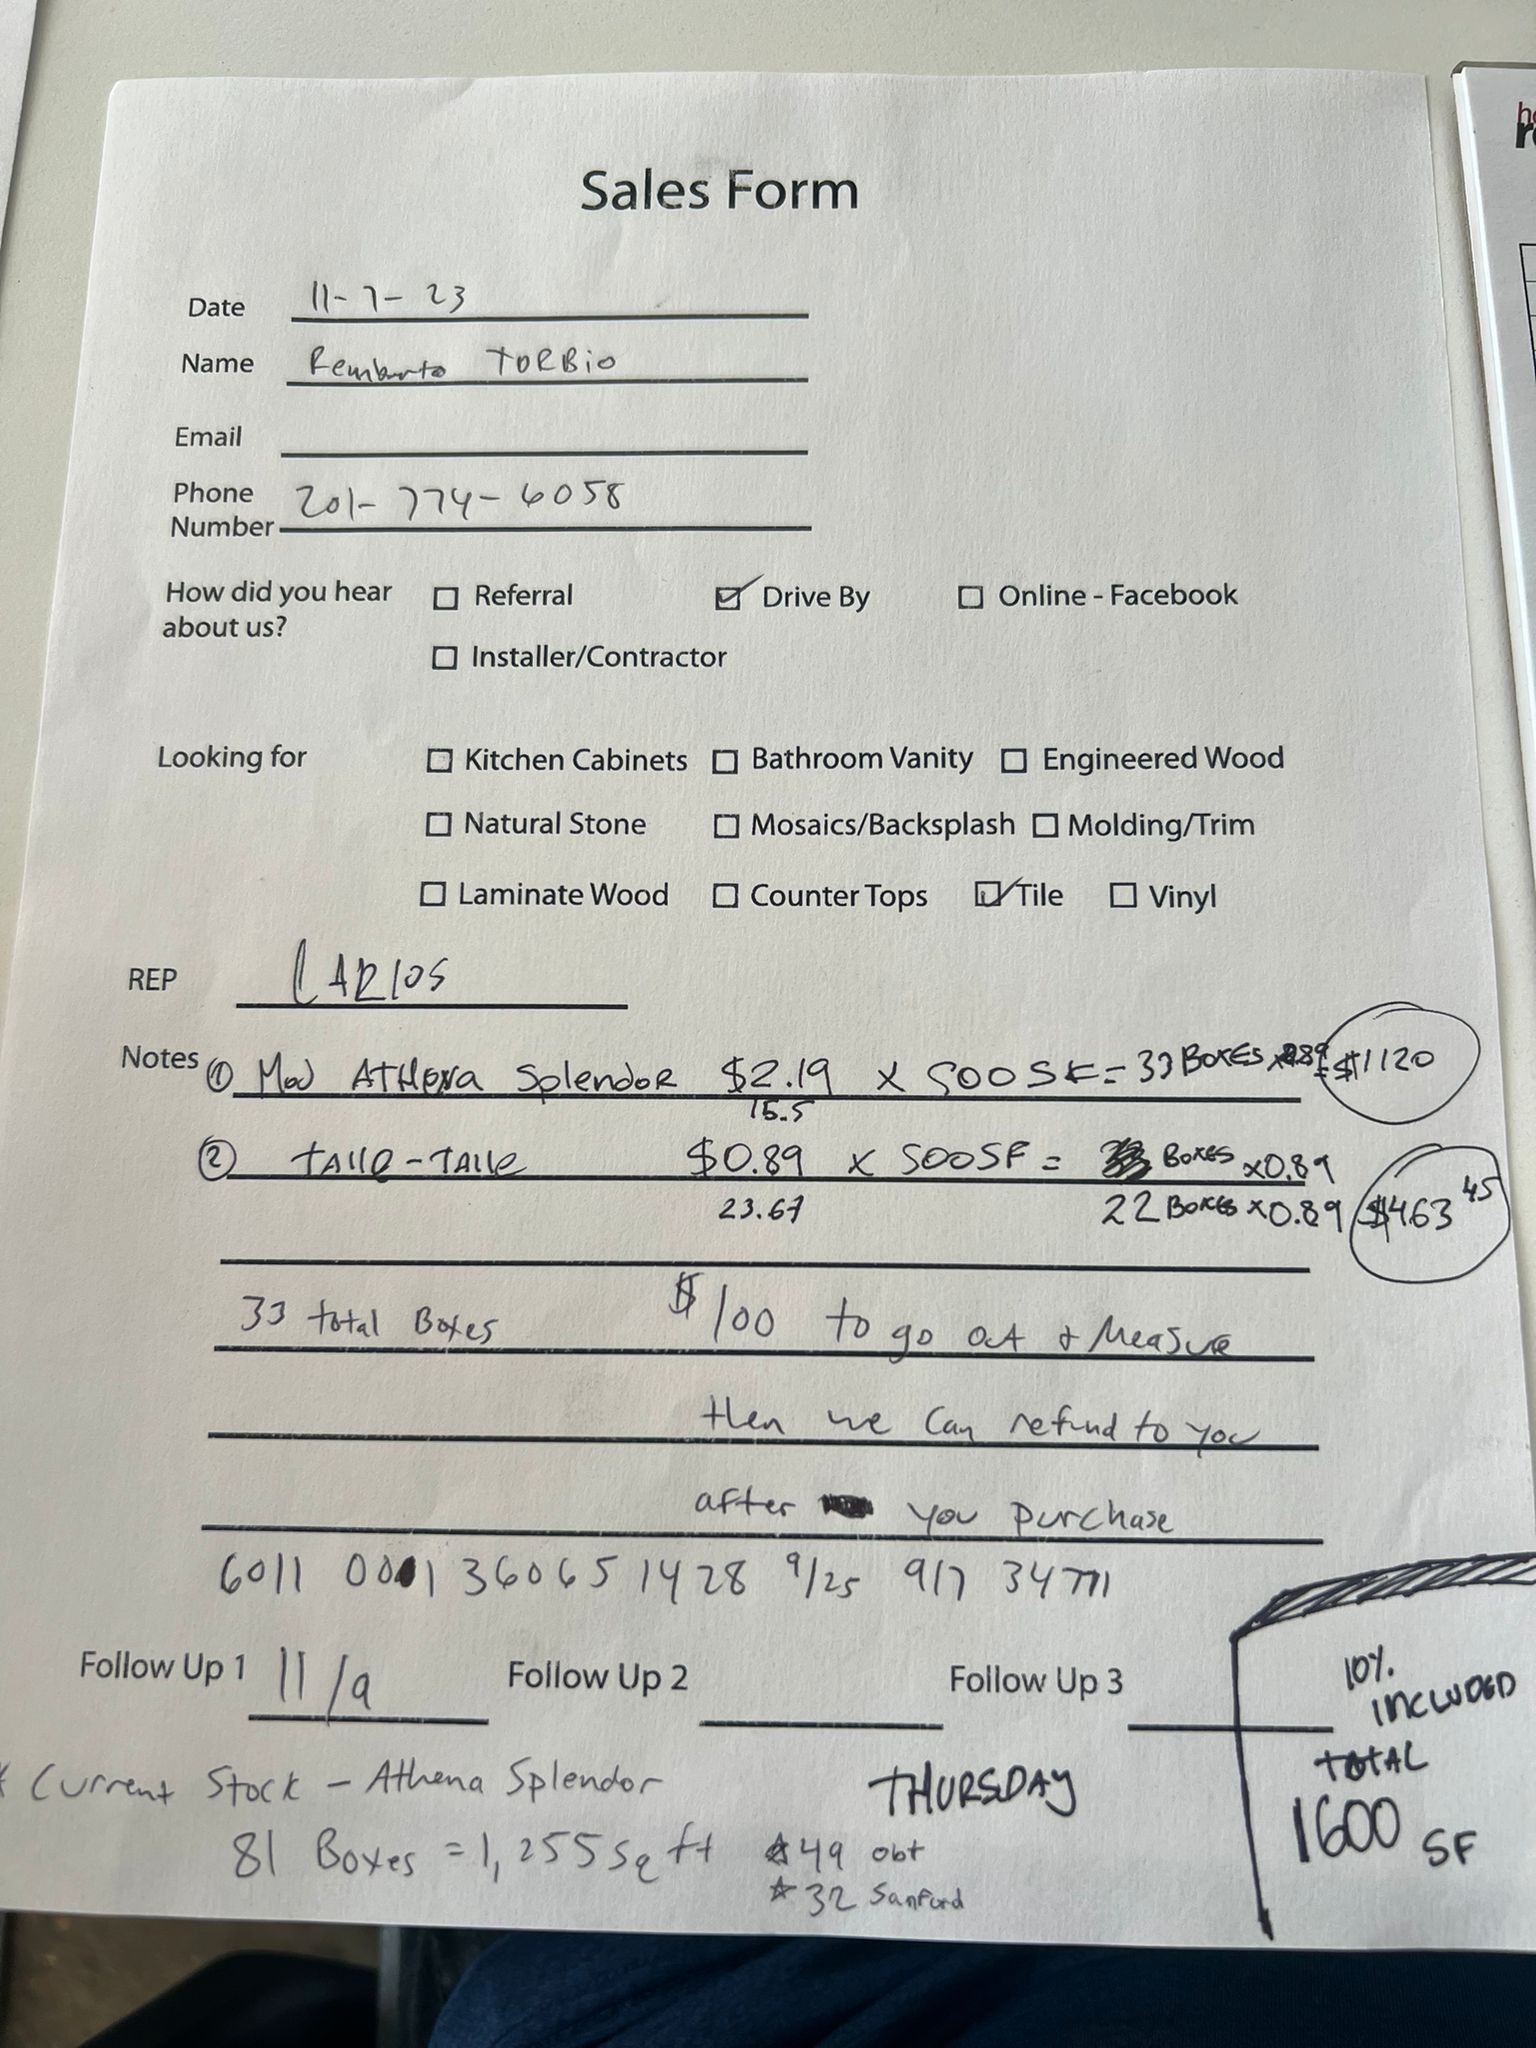 Sales Form
Date 11-7-23
Name Remberto TORBio
Email
Phone Number 201-774-6058
How did you hear about us? Referral Drive By Online - Facebook
Installer/Contractor
Looking for Kitchen Cabinets Bathroom Vanity Engineered Wood
Natural Stone Mosaics/Backsplash Molding/Trim
Laminate Wood Counter Tops Tile Vinyl
REP CARlOS
Notes ① ATHENA SplendoR $2.19 x 500 SF = 33 BOXES = $1120
15.5
② TAlle-TAlle $0.89 x 500SF = BOXES x0.89
23.67 22 BOXES x0.89 $463 45
33 total Boxes $100 to go out + Measure
then we can refund to you
after you purchase
[payment card details line withheld]
Follow Up 1 11/9 Follow Up 2 Follow Up 3
10% INCLUDED
* Current Stock - Athena Splendor THURSDAY TOTAL
81 Boxes = 1,255 sq ft 49 obt 1600 SF
32 Sanford